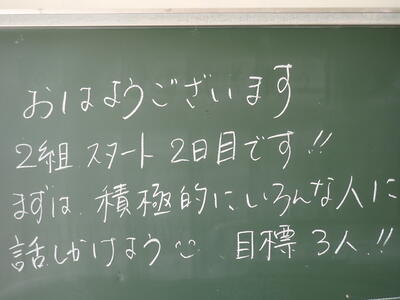 おはようございます
2組 スタート 2日目です!!
まずは 積極的にいろんな人に
話しかけよう 目標 3人!!